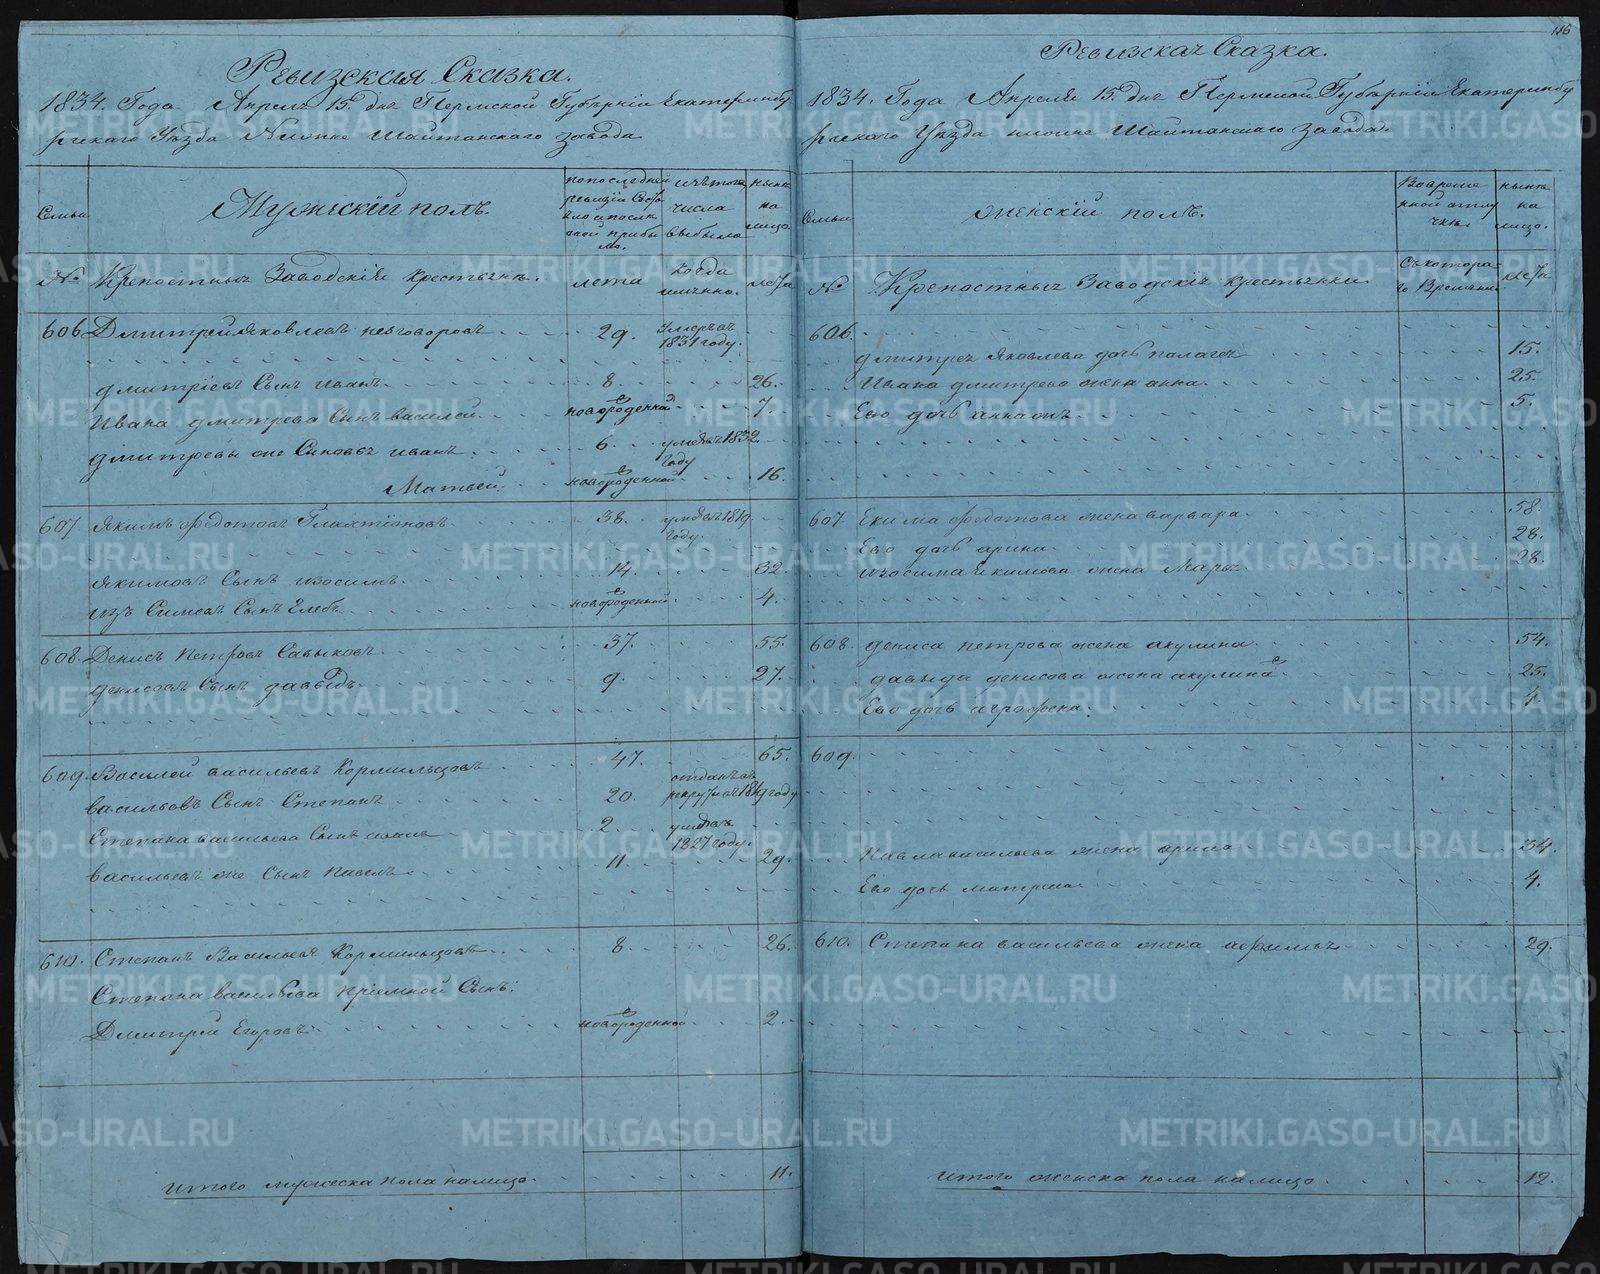 Ревизская Сказка.
1834. Года Апреля 15. дня Пермской Губернии Екатеринбу
ргскаго Уезда Нионие Шайтанскаго завода
Семьи
Мужнский полъ.
по последней ревизии Состо яло и после оной прибы ло.
изъ того числа выбыло
ныне на лицо
№
Крепостныя Заводския крестьяне.
лета
когда имянно.
лета
606. Дмитрей Яковлевъ невзговоровъ 29. умеръ въ 1831 году.
дмитриевъ Сынъ иванъ 8. 26.
Ивана дмитрева Сынъ василей новорожденной 7.
дмитревы же Сыновья иванъ 6. умеръ 1832 году
Матвей новорожденной 16.
607. Якимъ Федотовъ Плаптионовъ 38. умеръ 1819 году.
якимовъ Сынъ изосимъ 14. 32.
изъ Симеа Сынъ Глебъ новорожденной 4.
608. Денисъ Петровъ Савыковъ 37. 55.
денисовъ Сынъ давыдъ 9. 27.
609. Василей васильевъ Кормильцовъ 47. 65.
васильевъ Сынъ Степанъ 20. отданъ въ рекруты въ 1819 году
Степана васильева Сынъ иванъ 2. умеръ 1827 году.
васильевъ же Сынъ Павелъ 11. 29.
610. Степанъ Васильевъ Кормильцовъ 8. 26.
Степана васильева приемной Сынъ:
Дмитрей Егоровъ новорожденной 2.
итого мужеска пола налицо. 11.
116
Ревизская Сказка.
1834. Года Апреля 15. дня Пермской Губернии Екатеринбу
ргскаго Уезда нионие Шайтанскаго завода.
Семьи
женский полъ.
Во време нной отлу чке.
ныне на лицо.
№
Крепостныя Заводския крестьянки.
Съ которо го Времени
лета
606.
дмитрея Яковлева дочь палагея 15.
Ивана дмитрева жена анна 25.
Ево дочь 5.
607. Екима Федотова жена варвара 58.
Ево дочь арина 28.
изосима якимова жена Марья 28.
608. дениса петрова жена акулина 54.
давыда денисова жена акулина 25.
Ево дочь агрофена. 1.
609.
Павла васильева жена арина 34.
Ево дочь матрена 4.
610. Степана васильева жена афимья 29.
итого женска пола налицо. 12.
METRIKI.GASO-URAL.RU